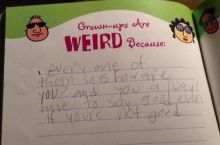 Grown-ups Are
WEIRD Because:
. every one of
them says how are
you and you always
have to say good even
if your not good